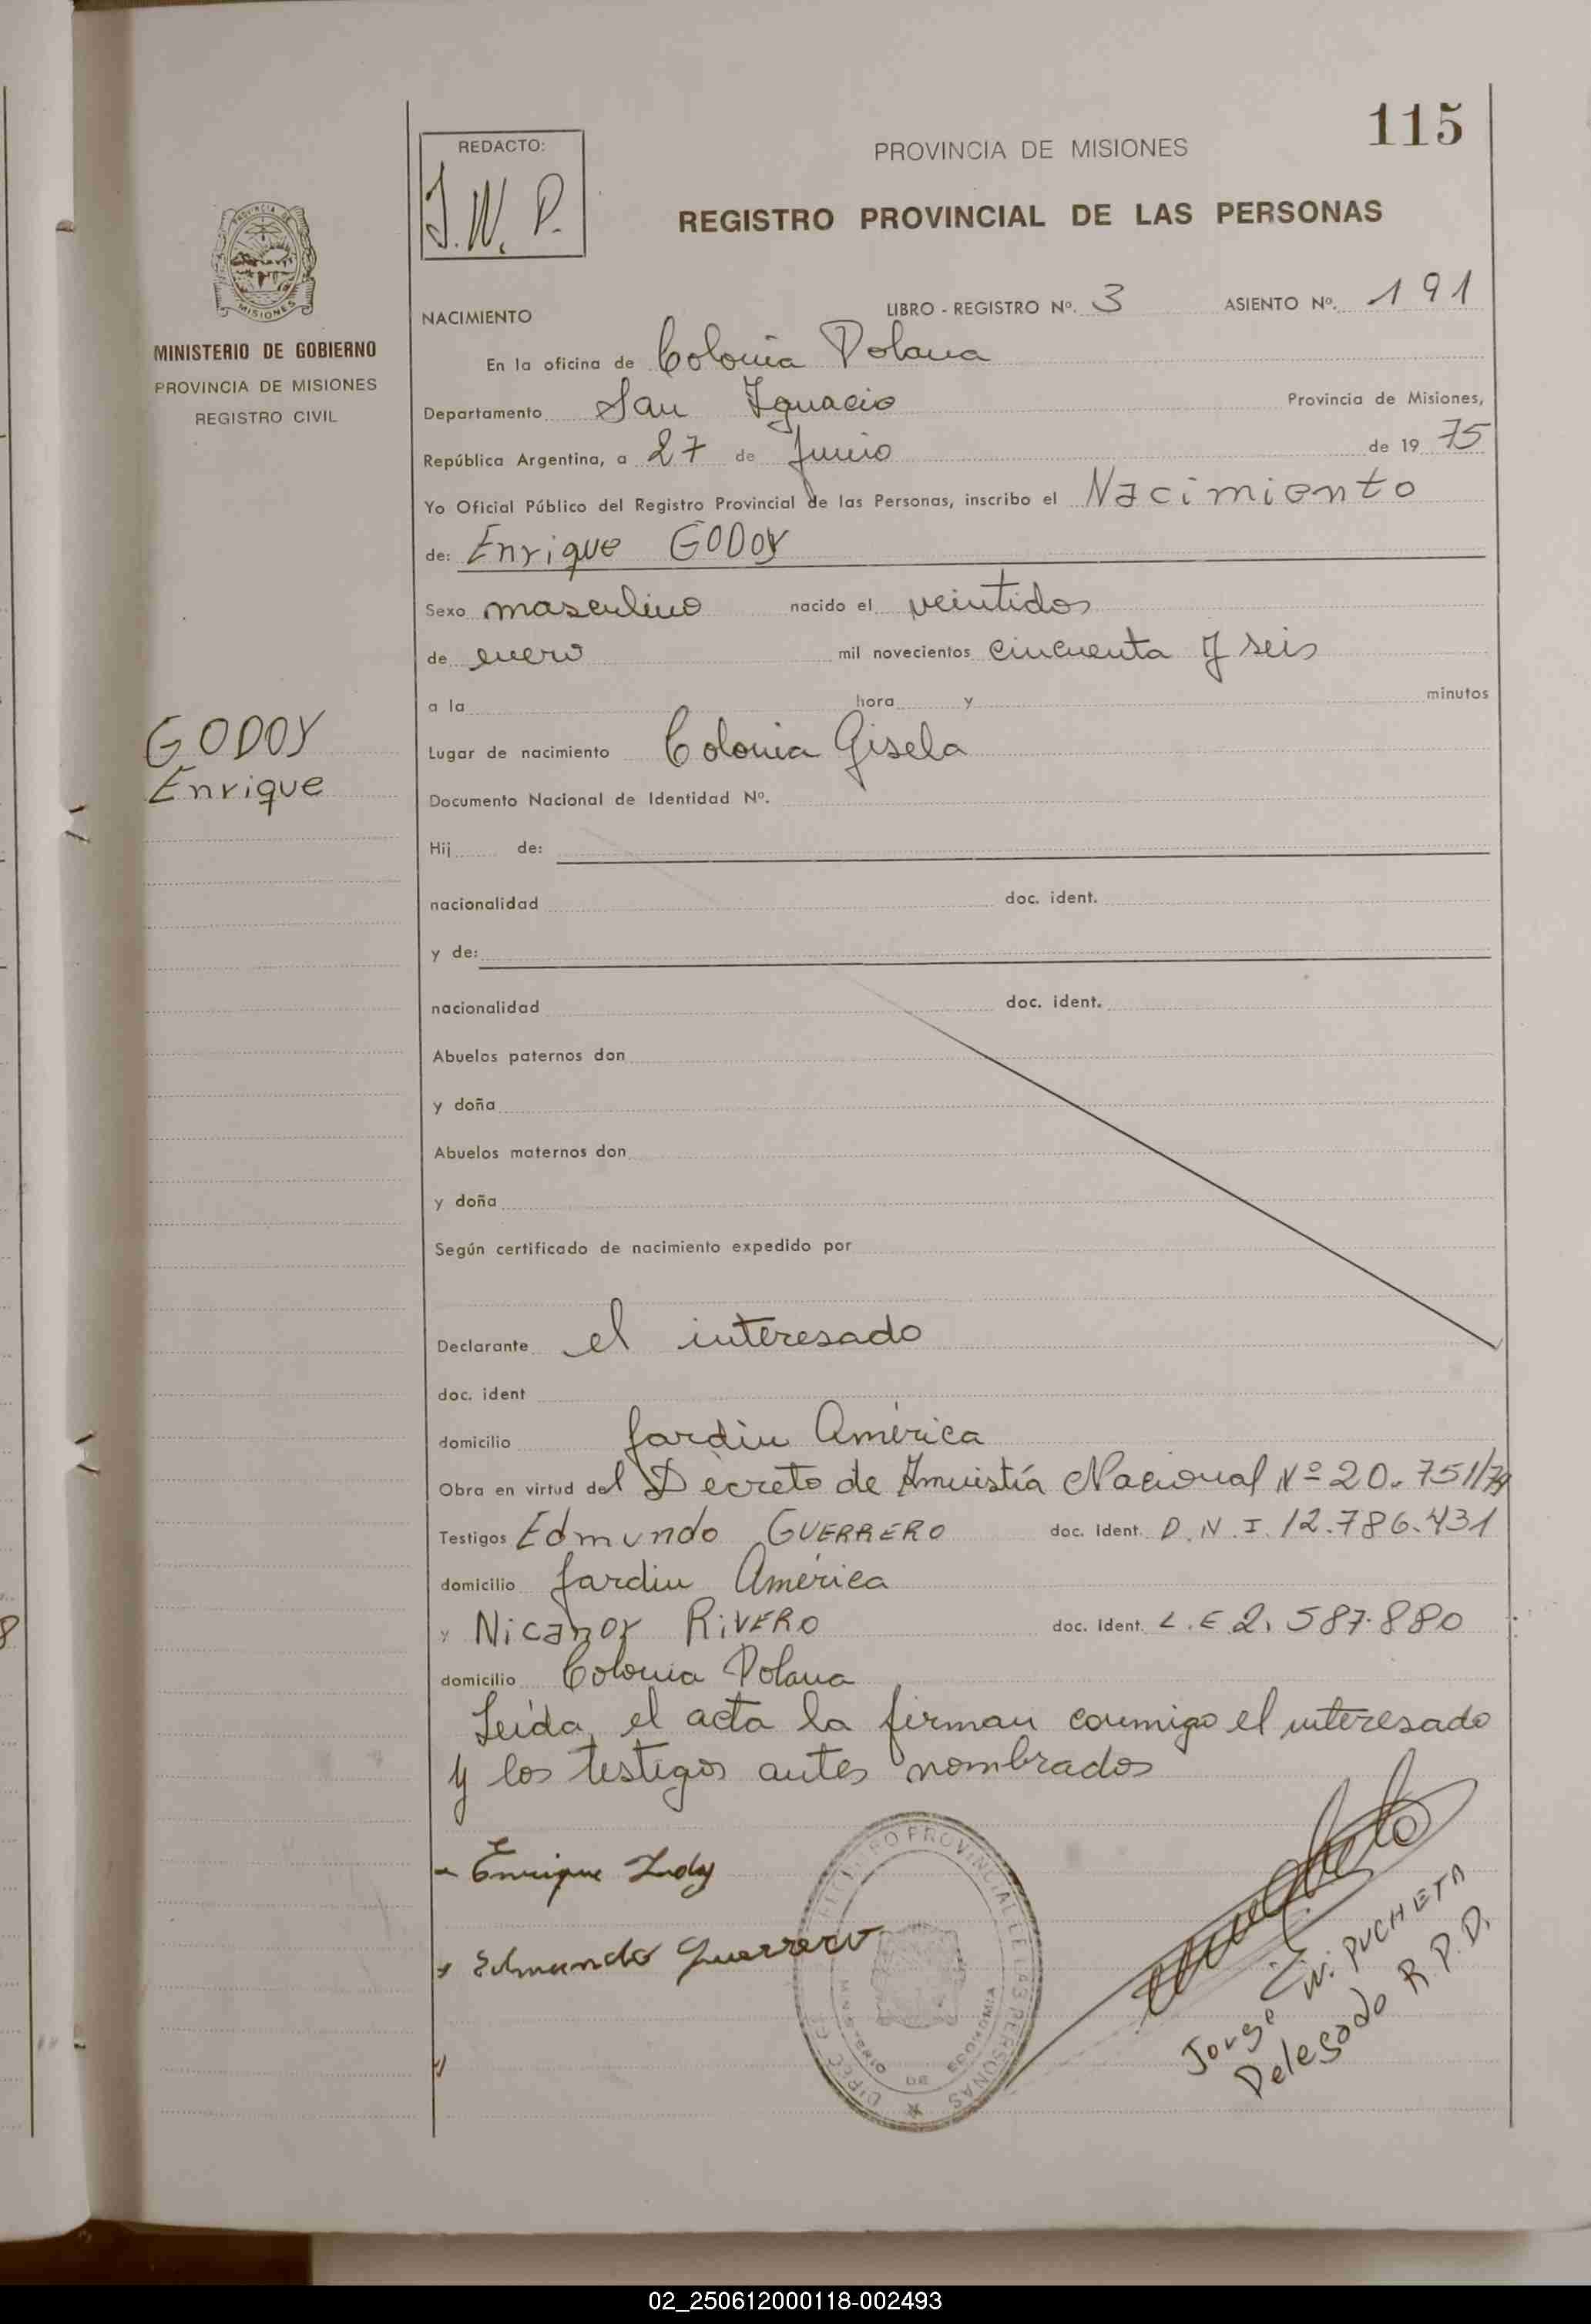 115
REDACTO:
J.W.P.
PROVINCIA DE MISIONES
REGISTRO PROVINCIAL DE LAS PERSONAS
MISIONES
MINISTERIO DE GOBIERNO
PROVINCIA DE MISIONES
REGISTRO CIVIL
NACIMIENTO LIBRO - REGISTRO Nº. 3 ASIENTO Nº. 191
En la oficina de Colonia Polana
Departamento San Ignacio Provincia de Misiones,
República Argentina, a 27 de Junio de 19 75
Yo Oficial Público del Registro Provincial de las Personas, inscribo el Nacimiento
de: Enrique GODOY
Sexo masculino nacido el veintidos
de enero mil novecientos cincuenta y seis
a la hora y minutos
GODOY
Enrique
Lugar de nacimiento Colonia Gisela
Documento Nacional de Identidad Nº.
Hij de:
nacionalidad doc. ident.
y de:
nacionalidad doc. ident.
Abuelos paternos don
y doña
Abuelos maternos don
y doña
Según certificado de nacimiento expedido por
Declarante el interesado
doc. ident
domicilio Jardin América
Obra en virtud del Decreto de Amnistía Nacional Nº 20.751/74
Testigos Edmundo GUERRERO doc. ident. D.N.I. 12.786.431
domicilio Jardin América
y Nicanor RIVERO doc. ident. L.E 2.587.880
domicilio Colonia Polana
Leída el acta la firman conmigo el interesado
y los testigos antes nombrados
Enrique Godoy
Edmundo Guerrero
REGISTRO PROVINCIAL DE LAS PERSONAS
MINISTERIO DE ECONOMIA
Jorge W. PUCHETA
Delegado R.P.D.
02_250612000118-002493